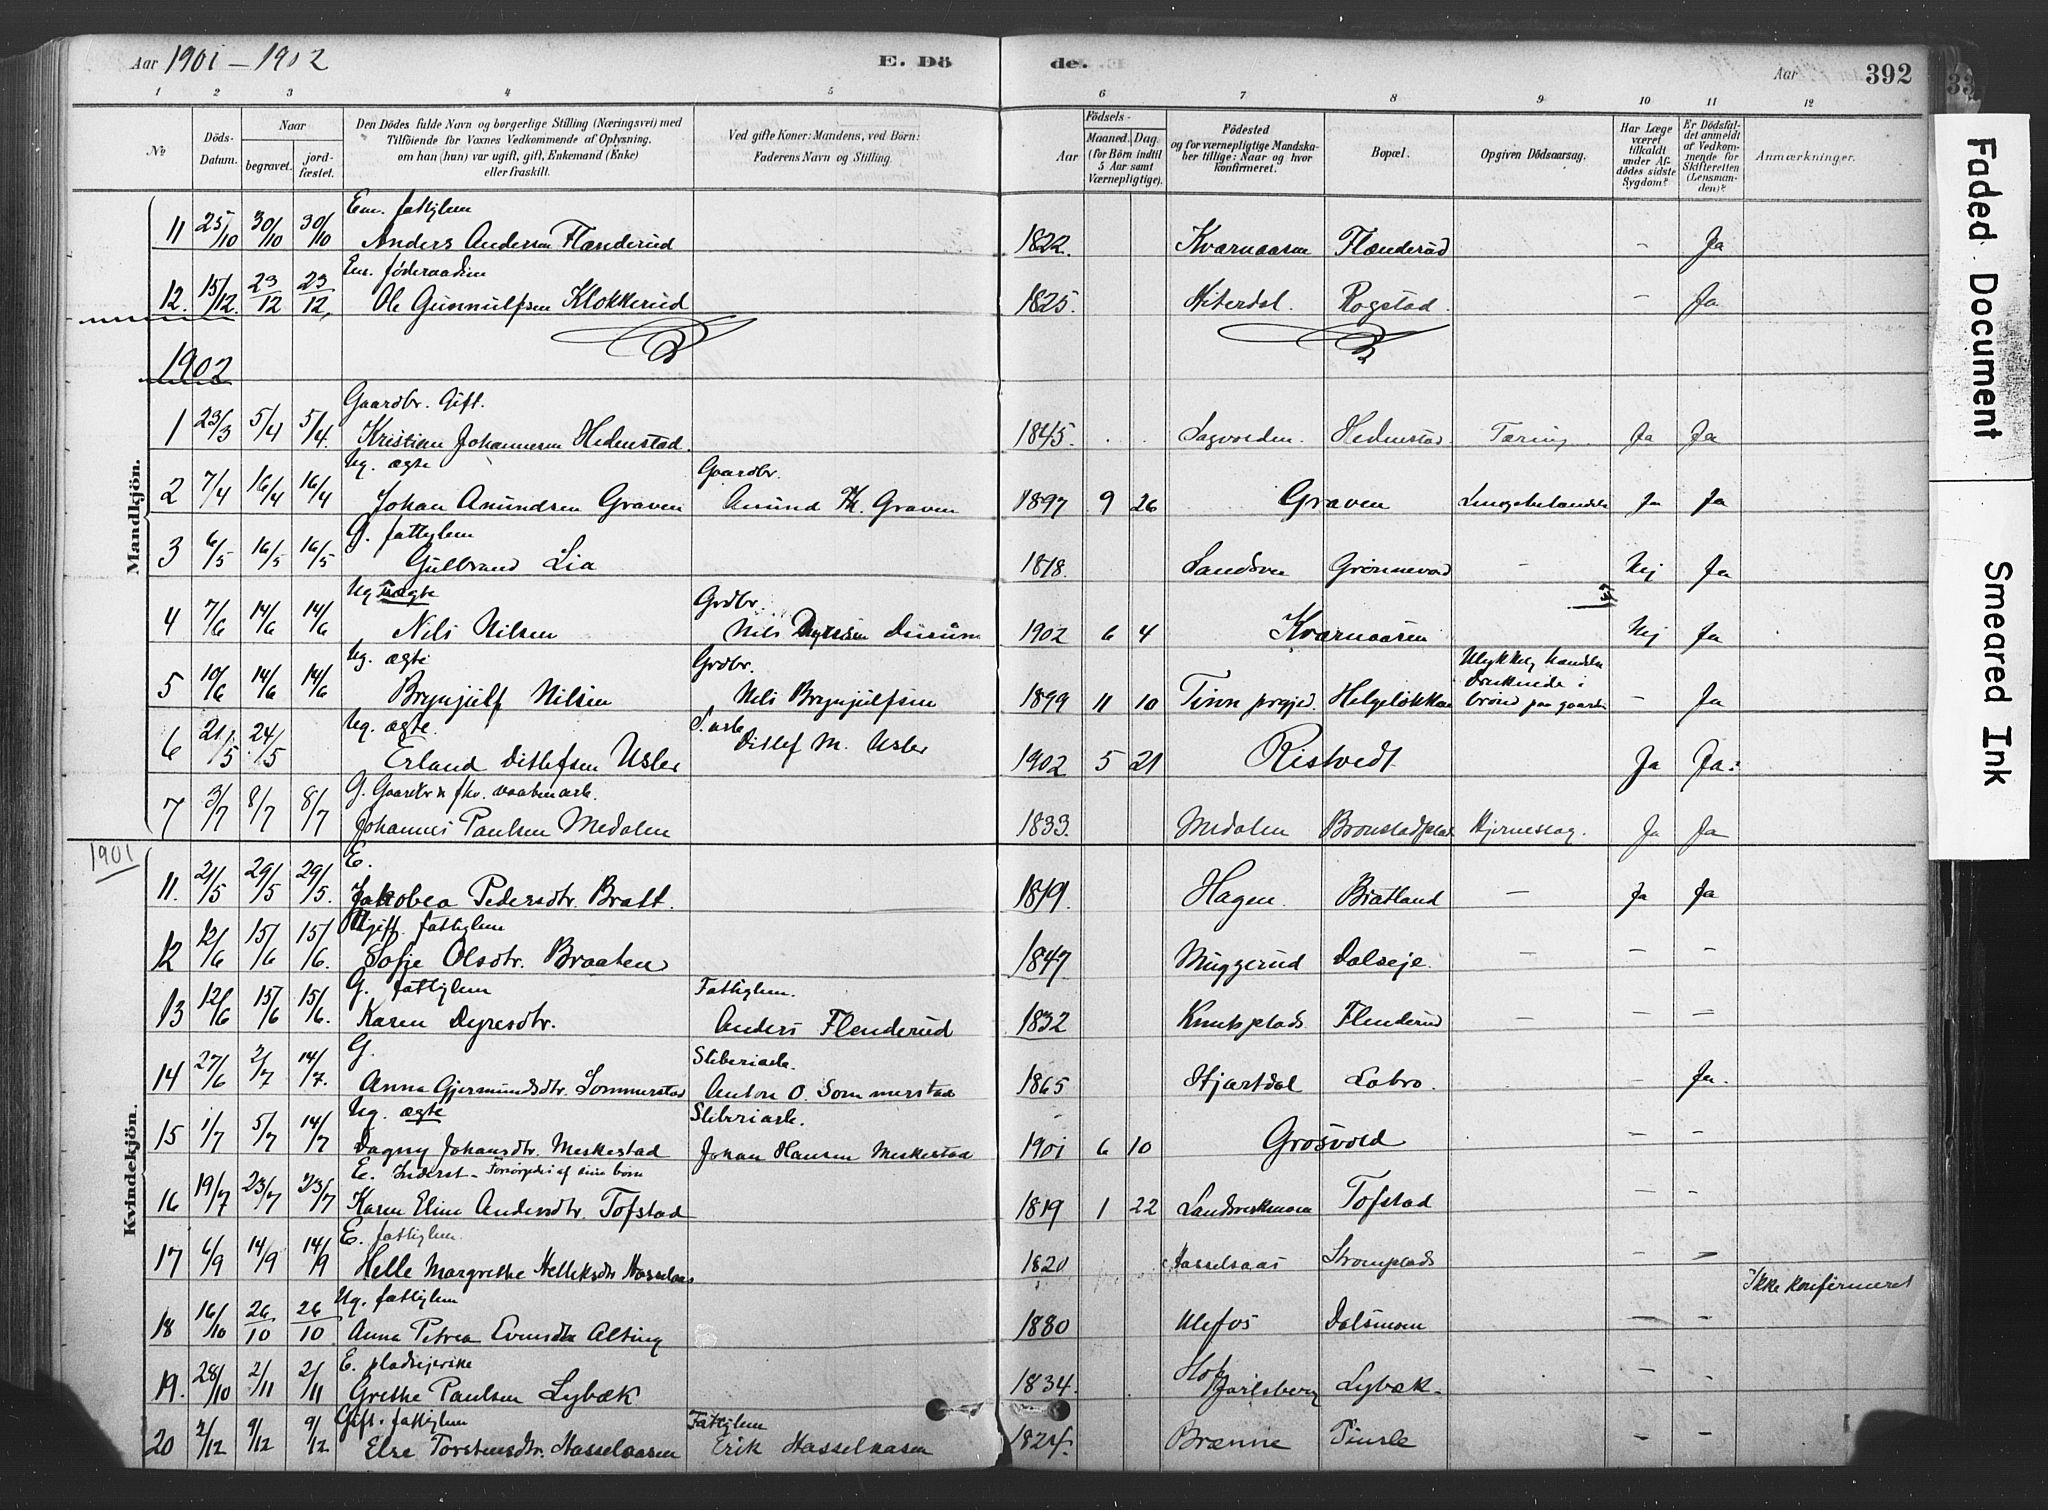 Aar 1901 – 1902
E. Dö
de.
Aar
392
1 2 3 4 5 6 7 8 9 10 11 12
No
Döds-Datum.
Naar
begravet.
jord-fæstet.
Den Dödes fulde Navn og borgerlige Stilling (Næringsvei) med
Tilföiende for Voxnes Vedkommende af Oplysning,
om han (hun) var ugift, gift, Enkemand (Enke)
eller fraskilt.
Ved gifte Koner: Mandens, ved Börn:
Faderens Navn og Stilling.
Födsels-
Aar
Maaned. Dag.
(for Börn indtil
5 Aar samt
Værnepligtige).
Födested
og for værnepligtige Mandska-
ber tillige: Naar og hvor
konfirmeret.
Bopæl.
Opgiven Dödsaarsag.
Har Læge
været
tilkaldt
under Af-
dödes sidste
Sygdom?
Er Dödsfal-
det anmeldt
af Vedkom-
mende for
Skifteretten
(Lensman-
den)?
Anmærkninger.
Mandkjön.
Em. fattiglem
11 25/10 30/10 30/10 Anders Andersen Flænderud 1822. Kvarnaasen Flænderud – Ja
Em. föderaadsm
12. 15/12. 23/12 23/12, Ole Gunnulfsen Klokkerud 1825. Hiterdal. Rogstad. – Ja
1902
Gaardbr. Gift.
1 23/3 5/4 5/4. Kristian Johannesen Hedenstad. 1845. Sagvolden. Hedenstad Tæring. Ja Ja
Ug. ægte Gaardbr.
2 7/4 16/4 16/4 Johan Amundsen Graven Amund Th. Graven 1897 9 26 Graven Lungebetændelse Ja Ja
G. fattiglem
3 6/5 16/5 16/5 Gulbrand Lia 1818. Sandsvær Grönnevold – Nej Ja
Ug uægte Grdbr.
4 7/6 14/6 14/6 Nils Nilsen Nils Dyresen 1902 6 4 Kvarnaasen Nej Ja
Ug. ægte Grdbr.
5 10/6 14/6 14/6 Brynjulf Nilsen Nils Brynjulfsen 1899 11 10 Tinn prgjd. Helgeløkken Ulykkelig hændelse
Druknede i
brønd paa gaarden – Ja
Ug. ægte.
6 21/5 24/5 Erland Ditlefsen Usler Ditlef M. Usler 1902 5 21 Ristvedt Ja Ja
G. Gaardbr & fhv. vaabenarb.
7 3/7 8/7 8/7 Johannes Paulsen Medalen 1833. Medalen Bronstadplads Hjerneslag. Ja Ja
1901
Kvindekjön.
E.
11. 21/5 29/5 29/5. Jakobea Pedersdtr. Bratt. 1819. Hagen. Bratland – Ja Ja
Ugift. fattiglem
12 12/6 15/6 15/6. Sofje Olsdtr. Braaten 1847 Muggerud Dalseje. – – –
G. fattiglem Fattiglem.
13 12/6 15/6 15/6. Karen Dyresdtr. Anders Flenderud 1832 Knutsplads Flenderud – – –
G. Sliberiarb.
14 27/6 2/7 14/7. Anna Gjermundsdtr. Sommerstad Anton O. Sommerstad 1865 Hjartdal Labro. – Ja.
Ug. ægte Sliberiarb.
15 1/7 5/7 14/7 Dagny Johansdtr. Meskestad Johan Hansen Meskestad 1901 6 10 Grosvold – –
E. Inderst – Forsörgdes af sine börn
16 19/7 23/7 23/7 Karen Eline Andersdtr. Tofstad 1819 1 22 Landsverkmoen Tofstad – –
E. fattiglem.
17 6/9 14/9 14/9 Helle Margrethe Helleksdtr Hasselaas 1820 Hasselaas Stromplads – –
Ug. fattiglem Ikke konfirmeret
18 16/10 26/10 26/10 Anna Petrea Evensdtr Alting 1880 Ulefos Dalsmoen – –
E. pladsejerske
19. 28/10 2/11 2/11 Grethe Paulsen Lybæk 1834. Hof
Jarlsberg Lybæk – –
Gift. fattiglem Fattiglem
20 2/12 9/12 9/12 Else Torstensdtr. Hasselaasen Erik Hasselaasen 1824. Brænne – –
Faded Document
Smeared Ink